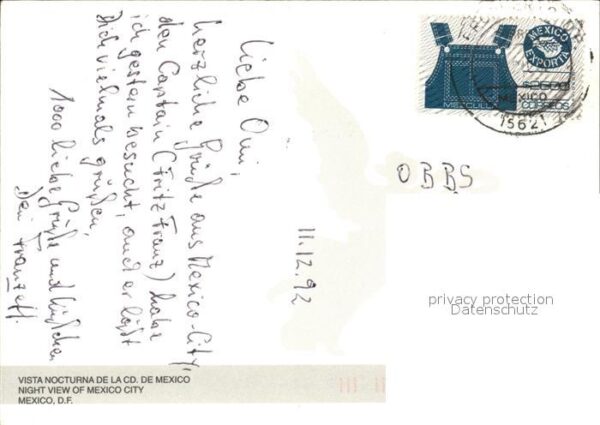 Liebe Omi,
herzliche Grüße aus Mexico-City,
den Captain (Fritz Franz) habe
ich gestern besucht, auch er läßt
Dich vielmals grüßen.
1000 liebe Grüße und Küßchen
Dein Franzeff.
11.12.92
MEXICO
EXPORTA
MEZCLILLA
MEXICO
CORREOS
1562
OBBS
privacy protection
Datenschutz
VISTA NOCTURNA DE LA CD. DE MEXICO
NIGHT VIEW OF MEXICO CITY
MEXICO, D.F.